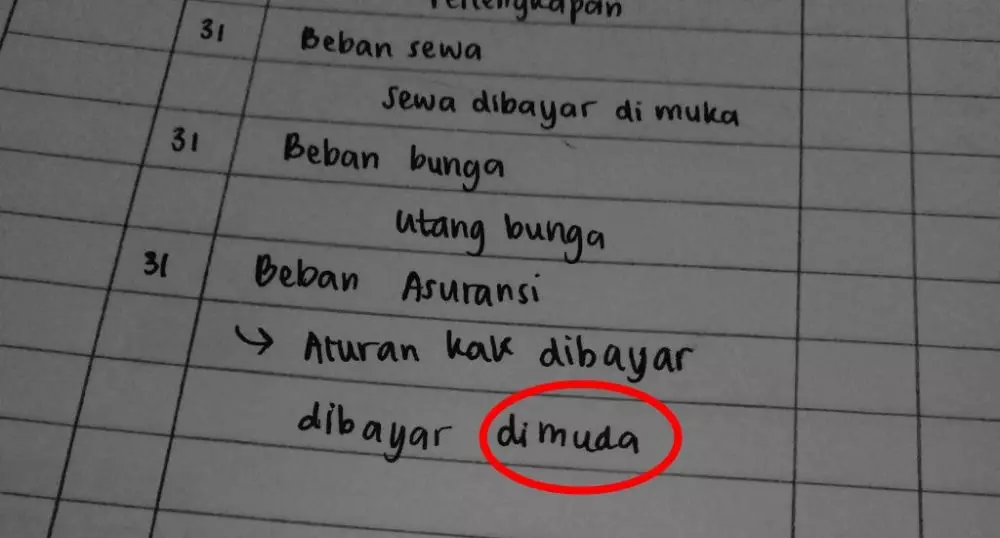 Perlengkapan
31 Beban sewa
sewa dibayar di muka
31 Beban bunga
utang bunga
31 Beban Asuransi
↳ Aturan kak dibayar
dibayar dimuda